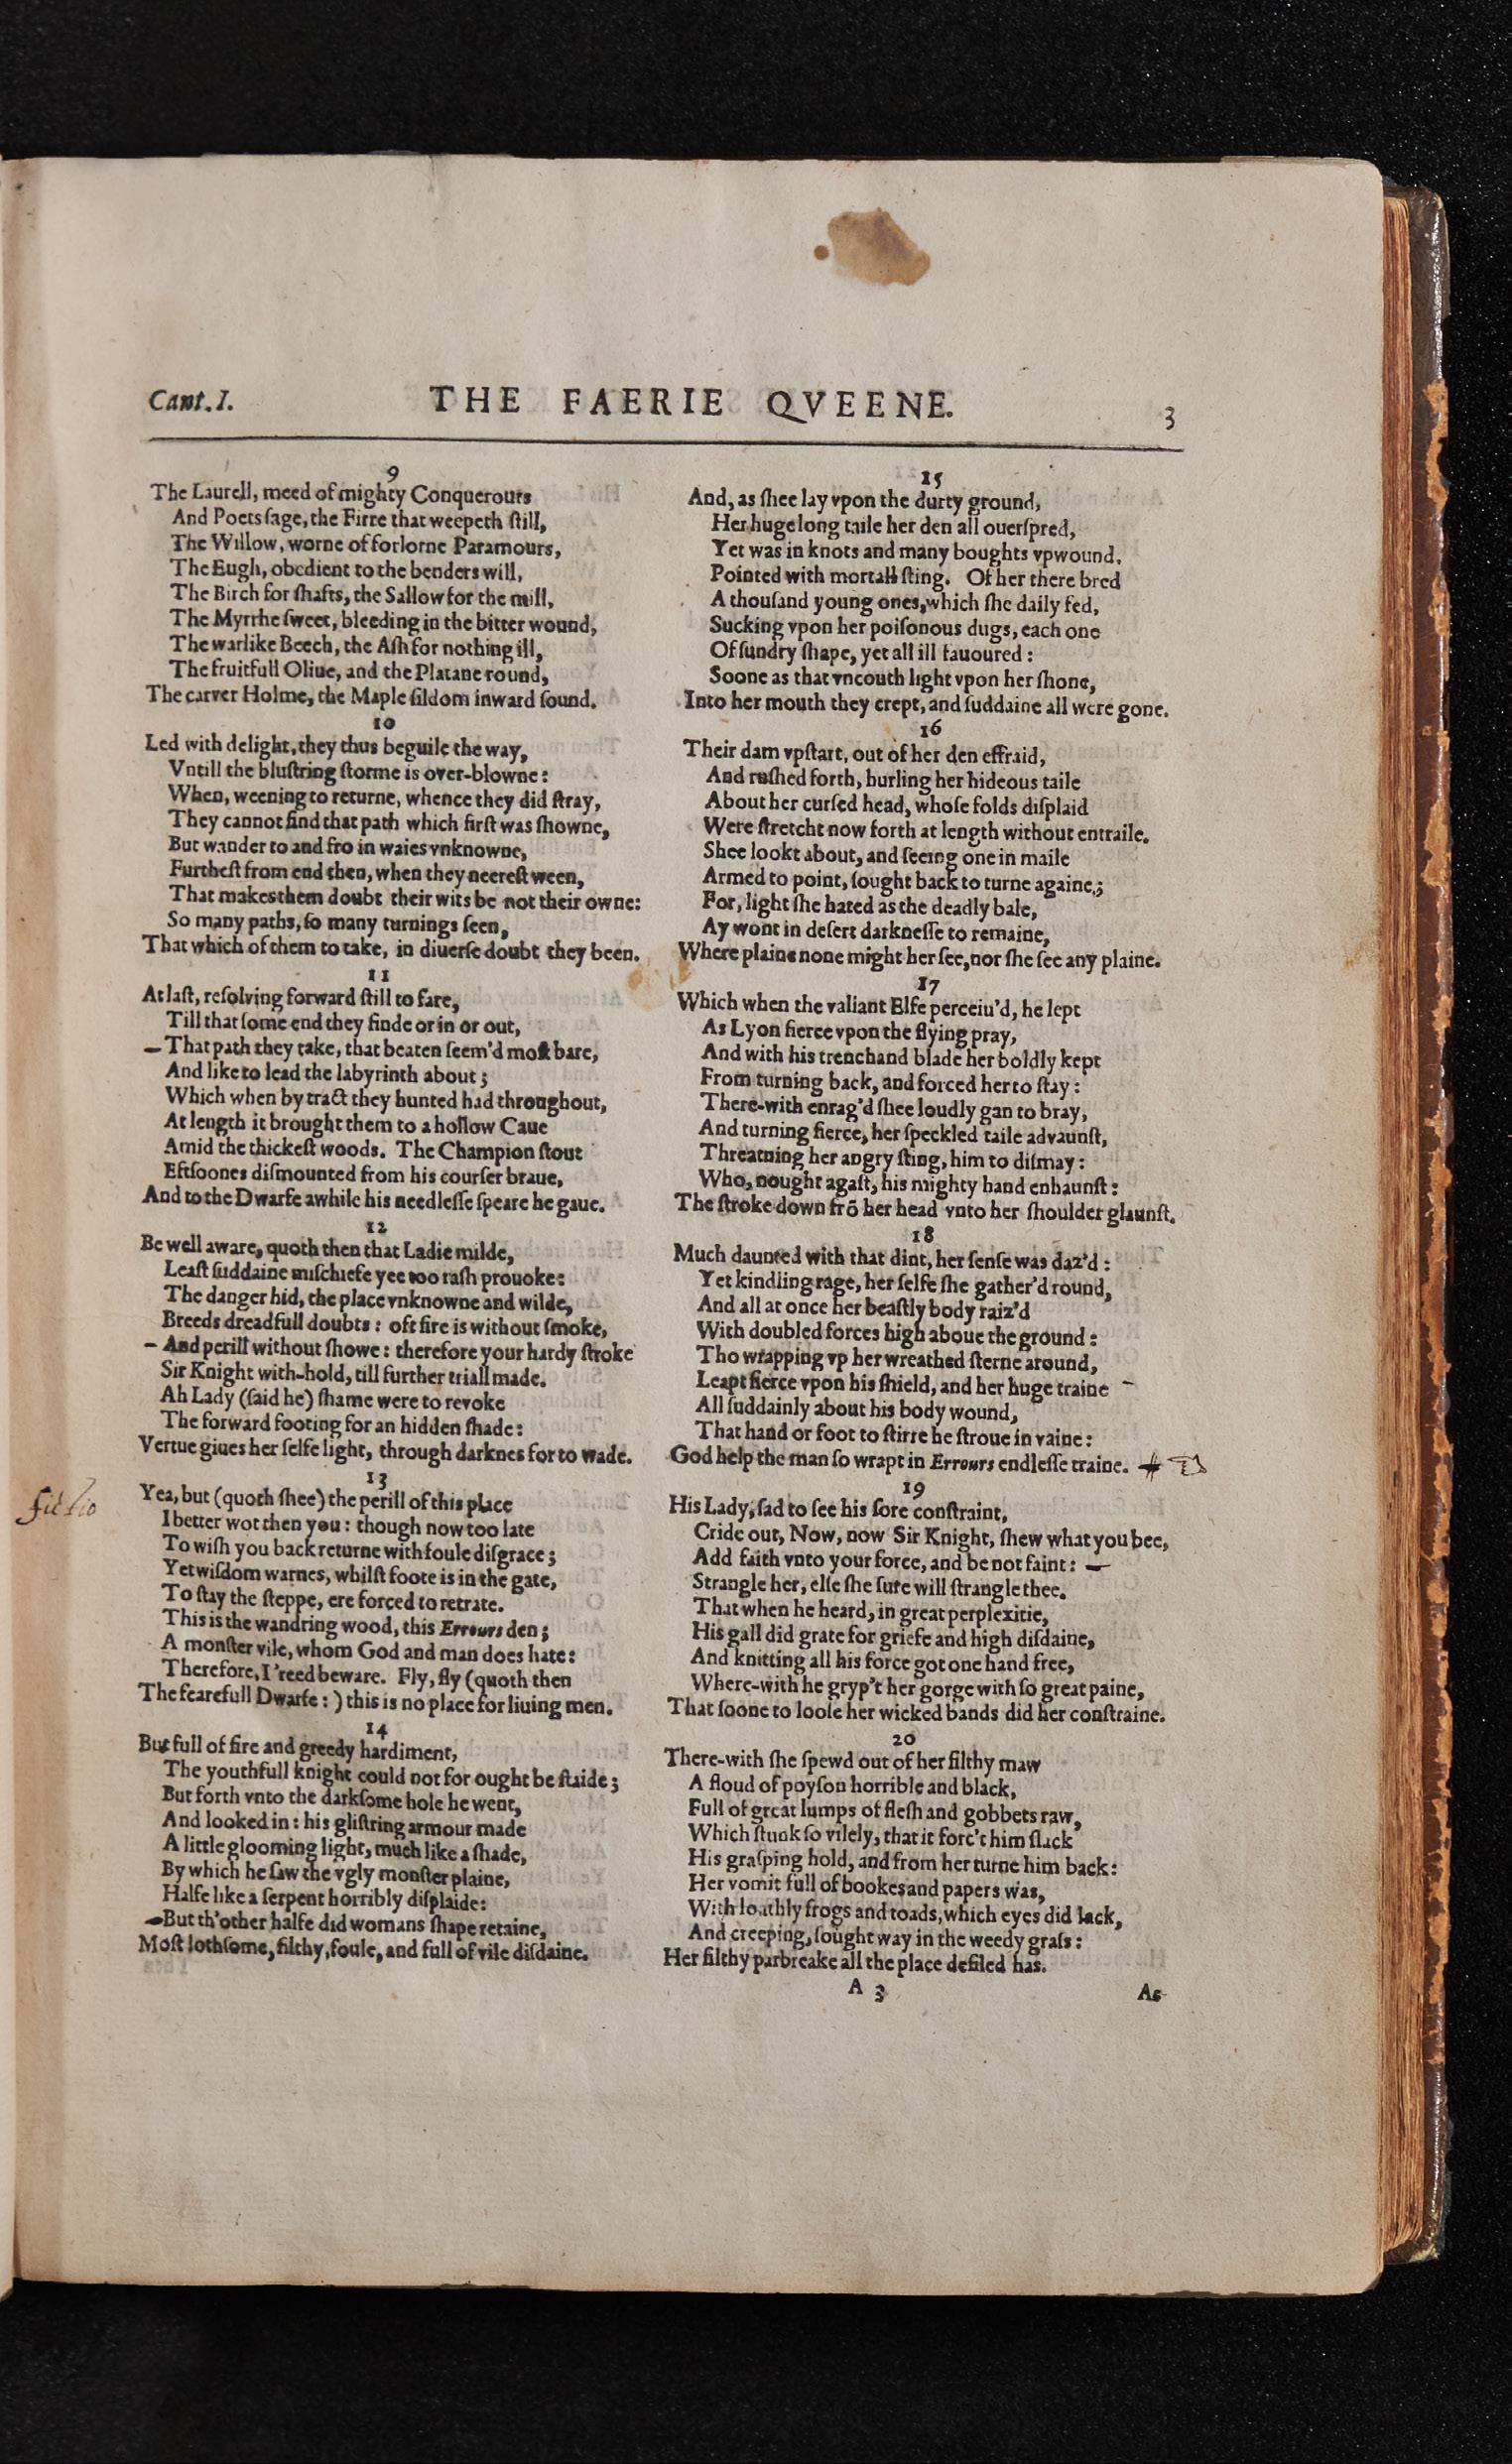 Cant. I.
THE FAERIE QVEENE.
3
9
The Laurell, meed of mighty Conquerours
And Poets ſage, the Firre that weepeth ſtill,
The Willow, worne of forlorne Paramours,
The Eugh, obedient to the benders will,
The Birch for ſhafts, the Sallow for the mill,
The Myrrhe ſweet, bleeding in the bitter wound,
The warlike Beech, the Aſh for nothing ill,
The fruitfull Oliue, and the Platane round,
The carver Holme, the Maple ſildom inward ſound.
10
Led with delight, they thus beguile the way,
Vntill the bluſtring ſtorme is over-blowne:
When, weening to returne, whence they did ſtray,
They cannot find that path which firſt was ſhowne,
But wander to and fro in waies vnknowne,
Furtheſt from end then, when they neereſt ween,
That makes them doubt their wits be not their owne:
So many paths, ſo many turnings ſeen,
That which of them to take, in diuerſe doubt they been.
11
At laſt, reſolving forward ſtill to fare,
Till that ſome end they finde or in or out,
That path they take, that beaten ſeem'd moſt bare,
And like to lead the labyrinth about;
Which when by tract they hunted had throughout,
At length it brought them to a hollow Caue
Amid the thickeſt woods. The Champion ſtout
Eftſoones diſmounted from his courſer braue,
And to the Dwarfe awhile his needleſſe ſpeare he gaue.
12
Be well aware, quoth then that Ladie milde,
Leaſt ſuddaine miſchiefe yee too raſh prouoke:
The danger hid, the place vnknowne and wilde,
Breeds dreadfull doubts: oft fire is without ſmoke,
And perill without ſhowe: therefore your hardy ſtroke
Sir Knight with-hold, till further triall made.
Ah Lady (ſaid he) ſhame were to revoke
The forward footing for an hidden ſhade:
Vertue giues her ſelfe light, through darknes for to wade.
13
Yea, but (quoth ſhee) the perill of this place
I better wot then you: though now too late
To wiſh you back returne with foule diſgrace;
Yet wiſdom warnes, whilſt foote is in the gate,
To ſtay the ſteppe, ere forced to retrate.
This is the wandring wood, this Errours den;
A monſter vile, whom God and man does hate:
Therefore, I 'reed beware. Fly, fly (quoth then
The fearefull Dwarfe:) this is no place for liuing men.
14
But full of fire and greedy hardiment,
The youthfull knight could not for ought be ſtaide;
But forth vnto the darkſome hole he went,
And looked in: his gliſtring armour made
A little glooming light, much like a ſhade,
By which he ſaw the vgly monſter plaine,
Halfe like a ſerpent horribly diſplaide:
But th'other halfe did womans ſhape retaine,
Moſt lothſome, filthy, foule, and full of vile diſdaine.
15
And, as ſhee lay vpon the durty ground,
Her huge long taile her den all ouerſpred,
Yet was in knots and many boughts vpwound,
Pointed with mortall ſting. Of her there bred
A thouſand young ones, which ſhe daily fed,
Sucking vpon her poiſonous dugs, each one
Of ſundry ſhape, yet all ill fauoured:
Soone as that vncouth light vpon her ſhone,
Into her mouth they crept, and ſuddaine all were gone.
16
Their dam vpſtart, out of her den effraid,
And ruſhed forth, hurling her hideous taile
About her curſed head, whoſe folds diſplaid
Were ſtretcht now forth at length without entraile.
Shee lookt about, and ſeeing one in maile
Armed to point, ſought back to turne againe;
For, light ſhe hated as the deadly bale,
Ay wont in deſert darkneſſe to remaine,
Where plaine none might her ſee, nor ſhe ſee any plaine.
17
Which when the valiant Elfe perceiu'd, he lept
As Lyon fierce vpon the flying pray,
And with his trenchand blade her boldly kept
From turning back, and forced her to ſtay:
There-with enrag'd ſhee loudly gan to bray,
And turning fierce, her ſpeckled taile advaunſt,
Threatning her angry ſting, him to diſmay:
Who, nought agaſt, his mighty hand enhaunſt:
The ſtroke down frō her head vnto her ſhoulder glaunſt.
18
Much daunted with that dint, her ſenſe was daz'd:
Yet kindling rage, her ſelfe ſhe gather'd round,
And all at once her beaſtly body raiz'd
With doubled forces high aboue the ground:
Tho wrapping vp her wreathed ſterne around,
Leapt fierce vpon his ſhield, and her huge traine
All ſuddainly about his body wound,
That hand or foot to ſtirre he ſtroue in vaine:
God help the man ſo wrapt in Errours endleſſe traine.
19
His Lady, ſad to ſee his ſore conſtraint,
Cride out, Now, now Sir Knight, ſhew what you bee,
Add faith vnto your force, and be not faint:
Strangle her, elſe ſhe ſure will ſtrangle thee.
That when he heard, in great perplexitie,
His gall did grate for griefe and high diſdaine,
And knitting all his force got one hand free,
Where-with he gryp't her gorge with ſo great paine,
That ſoone to looſe her wicked bands did her conſtraine.
20
There-with ſhe ſpewd out of her filthy maw
A floud of poyſon horrible and black,
Full of great lumps of fleſh and gobbets raw,
Which ſtunk ſo vilely, that it forc't him ſlack
His graſping hold, and from her turne him back:
Her vomit full of bookes and papers was,
With loathly frogs and toads, which eyes did lack,
And creeping, ſought way in the weedy graſs:
Her filthy parbreake all the place defiled has.
A 3
As